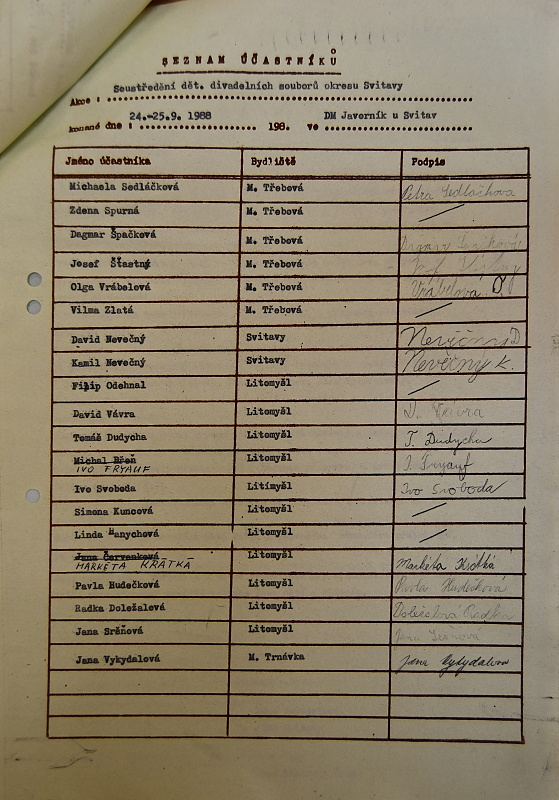 SEZNAM ÚČASTNÍKŮ
Soustředění dět. divadelních souborů okresu Svitavy
Akce :
24.-25.9. 1988 DM Javorník u Svitav
konané dne : 198. ve
Jméno účastníka Bydliště Podpis
Michaela Sedláčková M. Třebová Petra Sedláčková
Zdena Spurná M. Třebová
Dagmar Špačková M. Třebová Dagmar
Josef Šťastný M. Třebová
Olga Vrábelová M. Třebová Vrábelová O.
Vilma Zlatá M. Třebová
David Nevečný Svitavy Nevěčný D
Kamil Nevečný Svitavy Nevěčný K.
Filip Odehnal Litomyšl
David Vávra Litomyšl D. Vávra
Tomáš Dudycha Litomyšl T. Dudycha
Michal Břeň Litomyšl
IVO FRYAUF I. Fryauf
Ivo Svoboda Litimyšl Ivo Svoboda
Simona Kuncová Litomyšl
Linda Hanychová Litomyšl
Jana Červenková Litomyšl
MARKÉTA KRÁTKÁ Markéta Krátká
Pavla Hudečková Litomyšl Pavla Hudečková
Radka Doležalová Litomyšl Doležalová Radka
Jana Sršňová Litomyšl Jana Sršňová
Jana Vykydalová M. Trnávka Jana Vykydalová